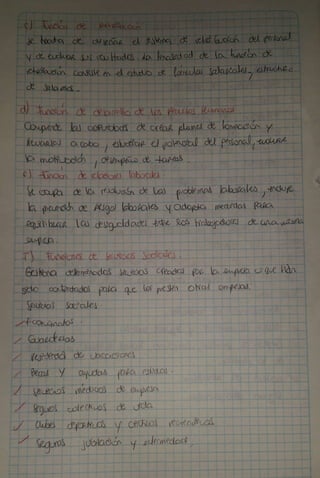 c) Función de retribución
se trata de diseñar el sistema de retribución del personal
y de evaluar sus resultados la finalidad de la función de
retribución consiste en el estudio de formulas salariales, estructura
de salarios.
d) Función de desarrollo de los recursos humanos
Comprende las actividades de crear planes de formación y
llevarlos a cabo, estudiar el potencial del personal, evaluar
la motivación, de tareas.
e) función de relaciones laborales
se ocupa de la resolución de los problemas laborales, incluye
la prevención de riesgo laborales y adopta medidas para
equilibrar las desigualdades entre los trabajadores de una misma
empresa.
f) Funciones de servicios sociales.
Gestiona determinados servicios creados por la empresa o que han
sido contratados para que los presten otras empresas.
Servicios sociales.
Economatos.
Guarderias
Residencia de vacaciones
Becas y ayudas para estudios.
servicios médicos de empresa
Seguros colectivos de vida
clubs deportivos y centros recreativos
Seguros jubilación y enfermedad,